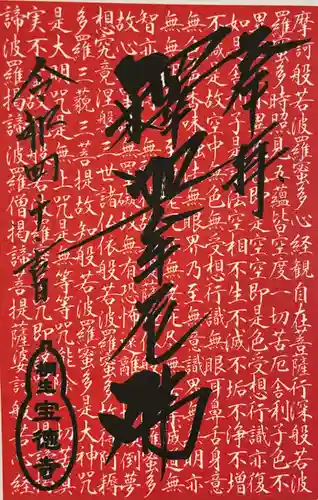 奉拝
釋迦牟尼佛
令和四
桐生 宝徳寺
摩訶般若波羅蜜多心経観自在菩薩行深般若波
羅蜜多時照見五蘊皆空度一切苦厄舎利子色不
異空空不異色色即是空空即是色受想行識亦復
如是舎利子是諸法空相不生不滅不垢不浄不増
不減是故空中無色無受想行識無眼耳鼻舌身意
無色声香味触法無眼界乃至無意識界無無明亦
無無明尽乃至無老死亦無老死尽無苦集滅道無
智亦無得以無所得故菩提薩埵依般若波羅蜜多
故心無罣礙無罣礙故無有恐怖遠離一切顛倒夢
想究竟涅槃三世諸仏依般若波羅蜜多故得阿耨
多羅三藐三菩提故知般若波羅蜜多是大神咒
是大明咒是無上咒是無等等咒能除一切苦真
実不虚故説般若波羅蜜多咒即説咒曰羯諦羯
諦波羅羯諦波羅僧羯諦菩提薩婆訶般若心経